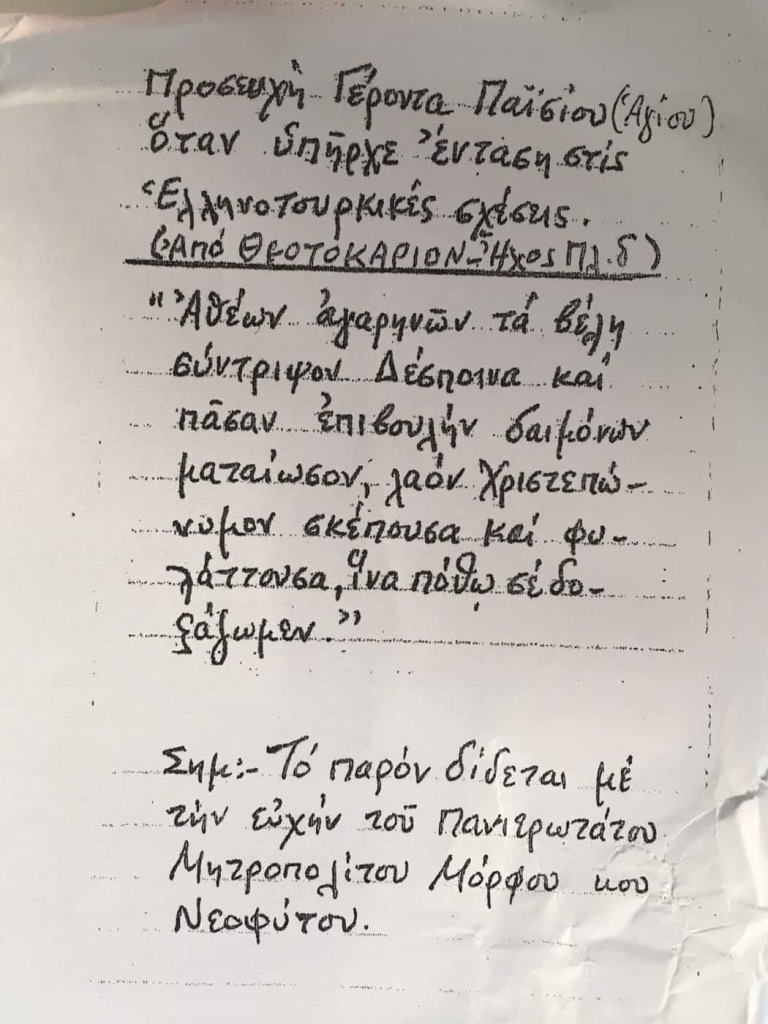 Προσευχή Γέροντα Παϊσίου (Ἁγίου)
ὅταν ὑπῆρχε ἔνταση στίς
Ἑλληνοτουρκικές σχέσεις.
(Ἀπό ΘΕΟΤΟΚΑΡΙΟΝ-Ἦχος Πλ.δ)
"Ἀθέων ἀγαρηνῶν τά βέλη
σύντριψον Δέσποινα καί
πᾶσαν ἐπιβουλήν δαιμόνων
ματαίωσον, λαόν Χριστεπώ-
νυμον σκέπουσα καί φυ-
λάττουσα, ἵνα πόθω σέ δο-
ξάζωμεν."
Σημ:- Τό παρόν δίδεται μέ
τήν εὐχήν τοῦ Πανιερωτάτου
Μητροπολίτου Μόρφου κου
Νεοφύτου.